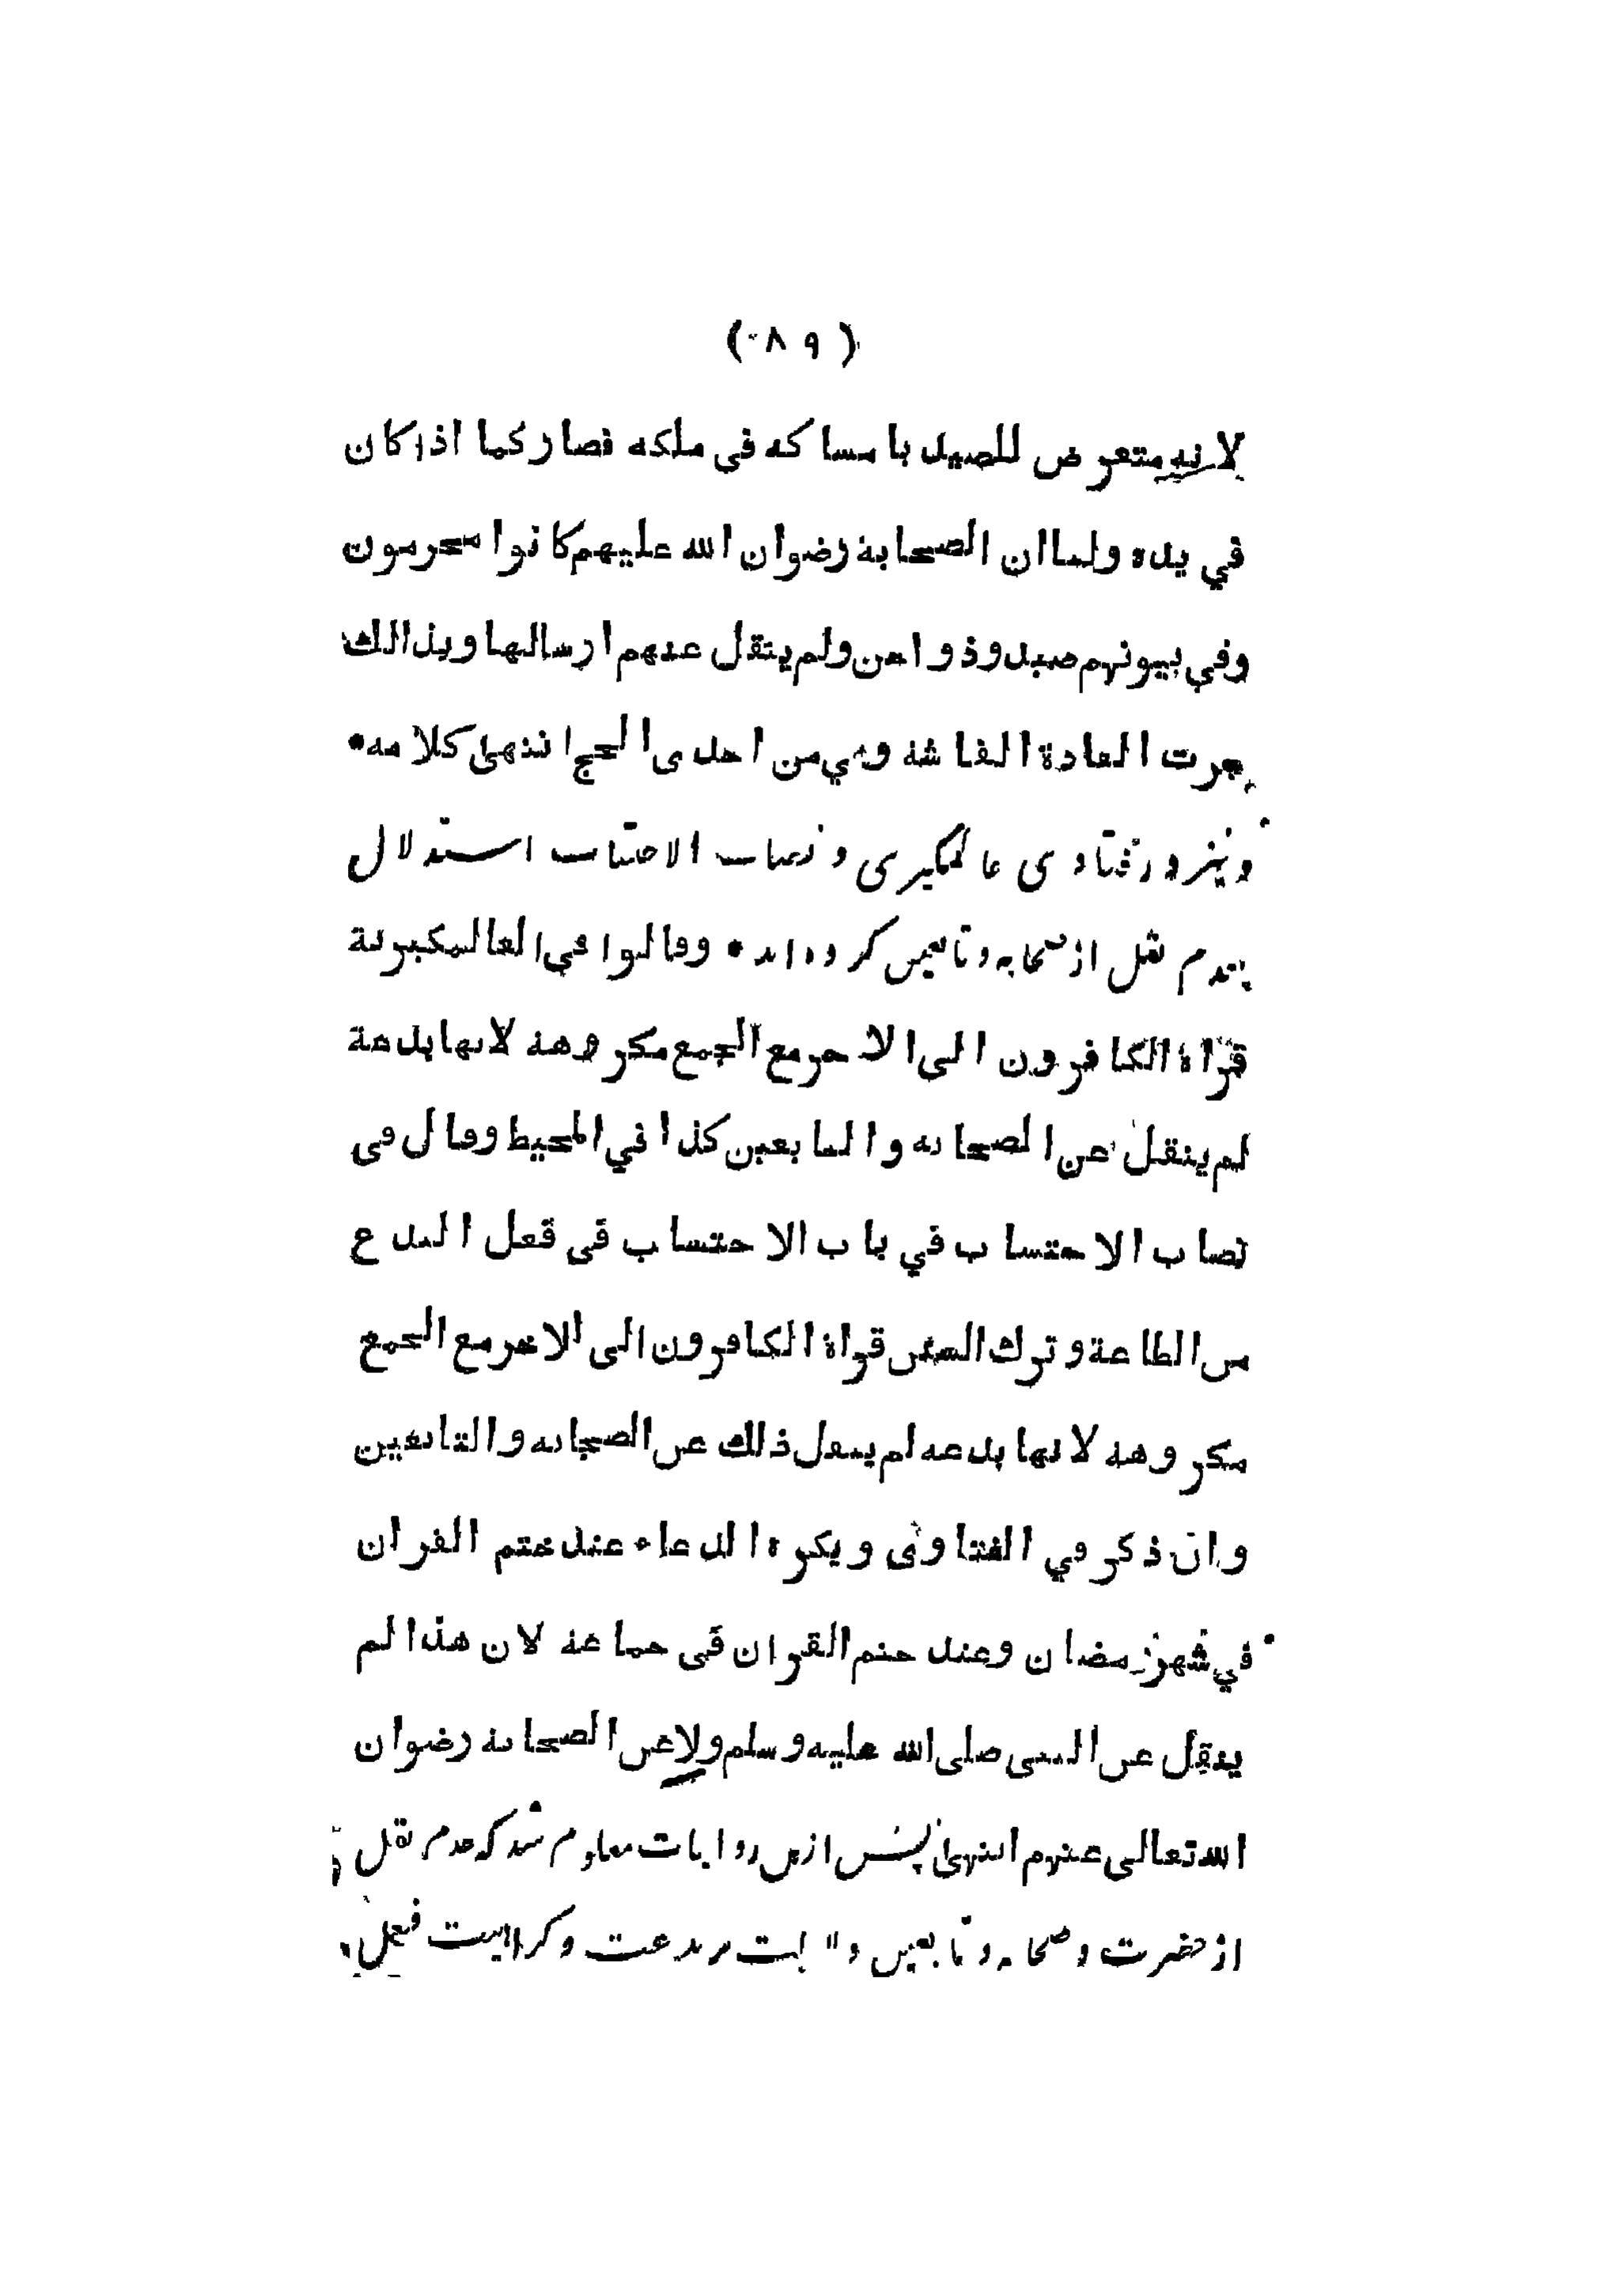 ( ٨٩ )
لانه متعرض للصيد بامساكه في ملكه فصار كما اذا كان
في يده ولما ان الصحابة رضوان الله عليهم كانوا محرمون
وفي بيوتهم صيد ودواجن ولم ينقل عنهم ارسالها وبذالك
جرت العادة الفاشة وهي من احدى الحج انتهى كلامه•
و نیز در فتاوی عالمگیری و نصاب الاحتساب استدلال
بعدم نقل از صحابه و تابعین کرده اند • وقالوا في العالمكيرية
قراة الكافرون الى الاخر مع الجمع مكروهة لانها بدعة
لم ينقل عن الصحابه والتابعين كذا في المحيط وقال في
نصاب الاحتساب في باب الاحتساب في فعل البدع
من الطاعة وترك السنن قراة الكافرون الى الاخر مع الجمع
مكروهة لانها بدعه لم ينقل ذلك عن الصحابه والتابعين
وان ذكر في الفتاوى ويكره الدعاء عند ختم القران
في شهر رمضان وعند ختم القران في جماعة لان هذا لم
ينقل عن النبى صلى الله عليه وسلم ولا عن الصحابة رضوان
الله تعالى عنهم انتهى پس ازین روایات معلوم شد که عدم نقل
از حضرت و صحابه و تابعین بدعت و کراهیت فعل